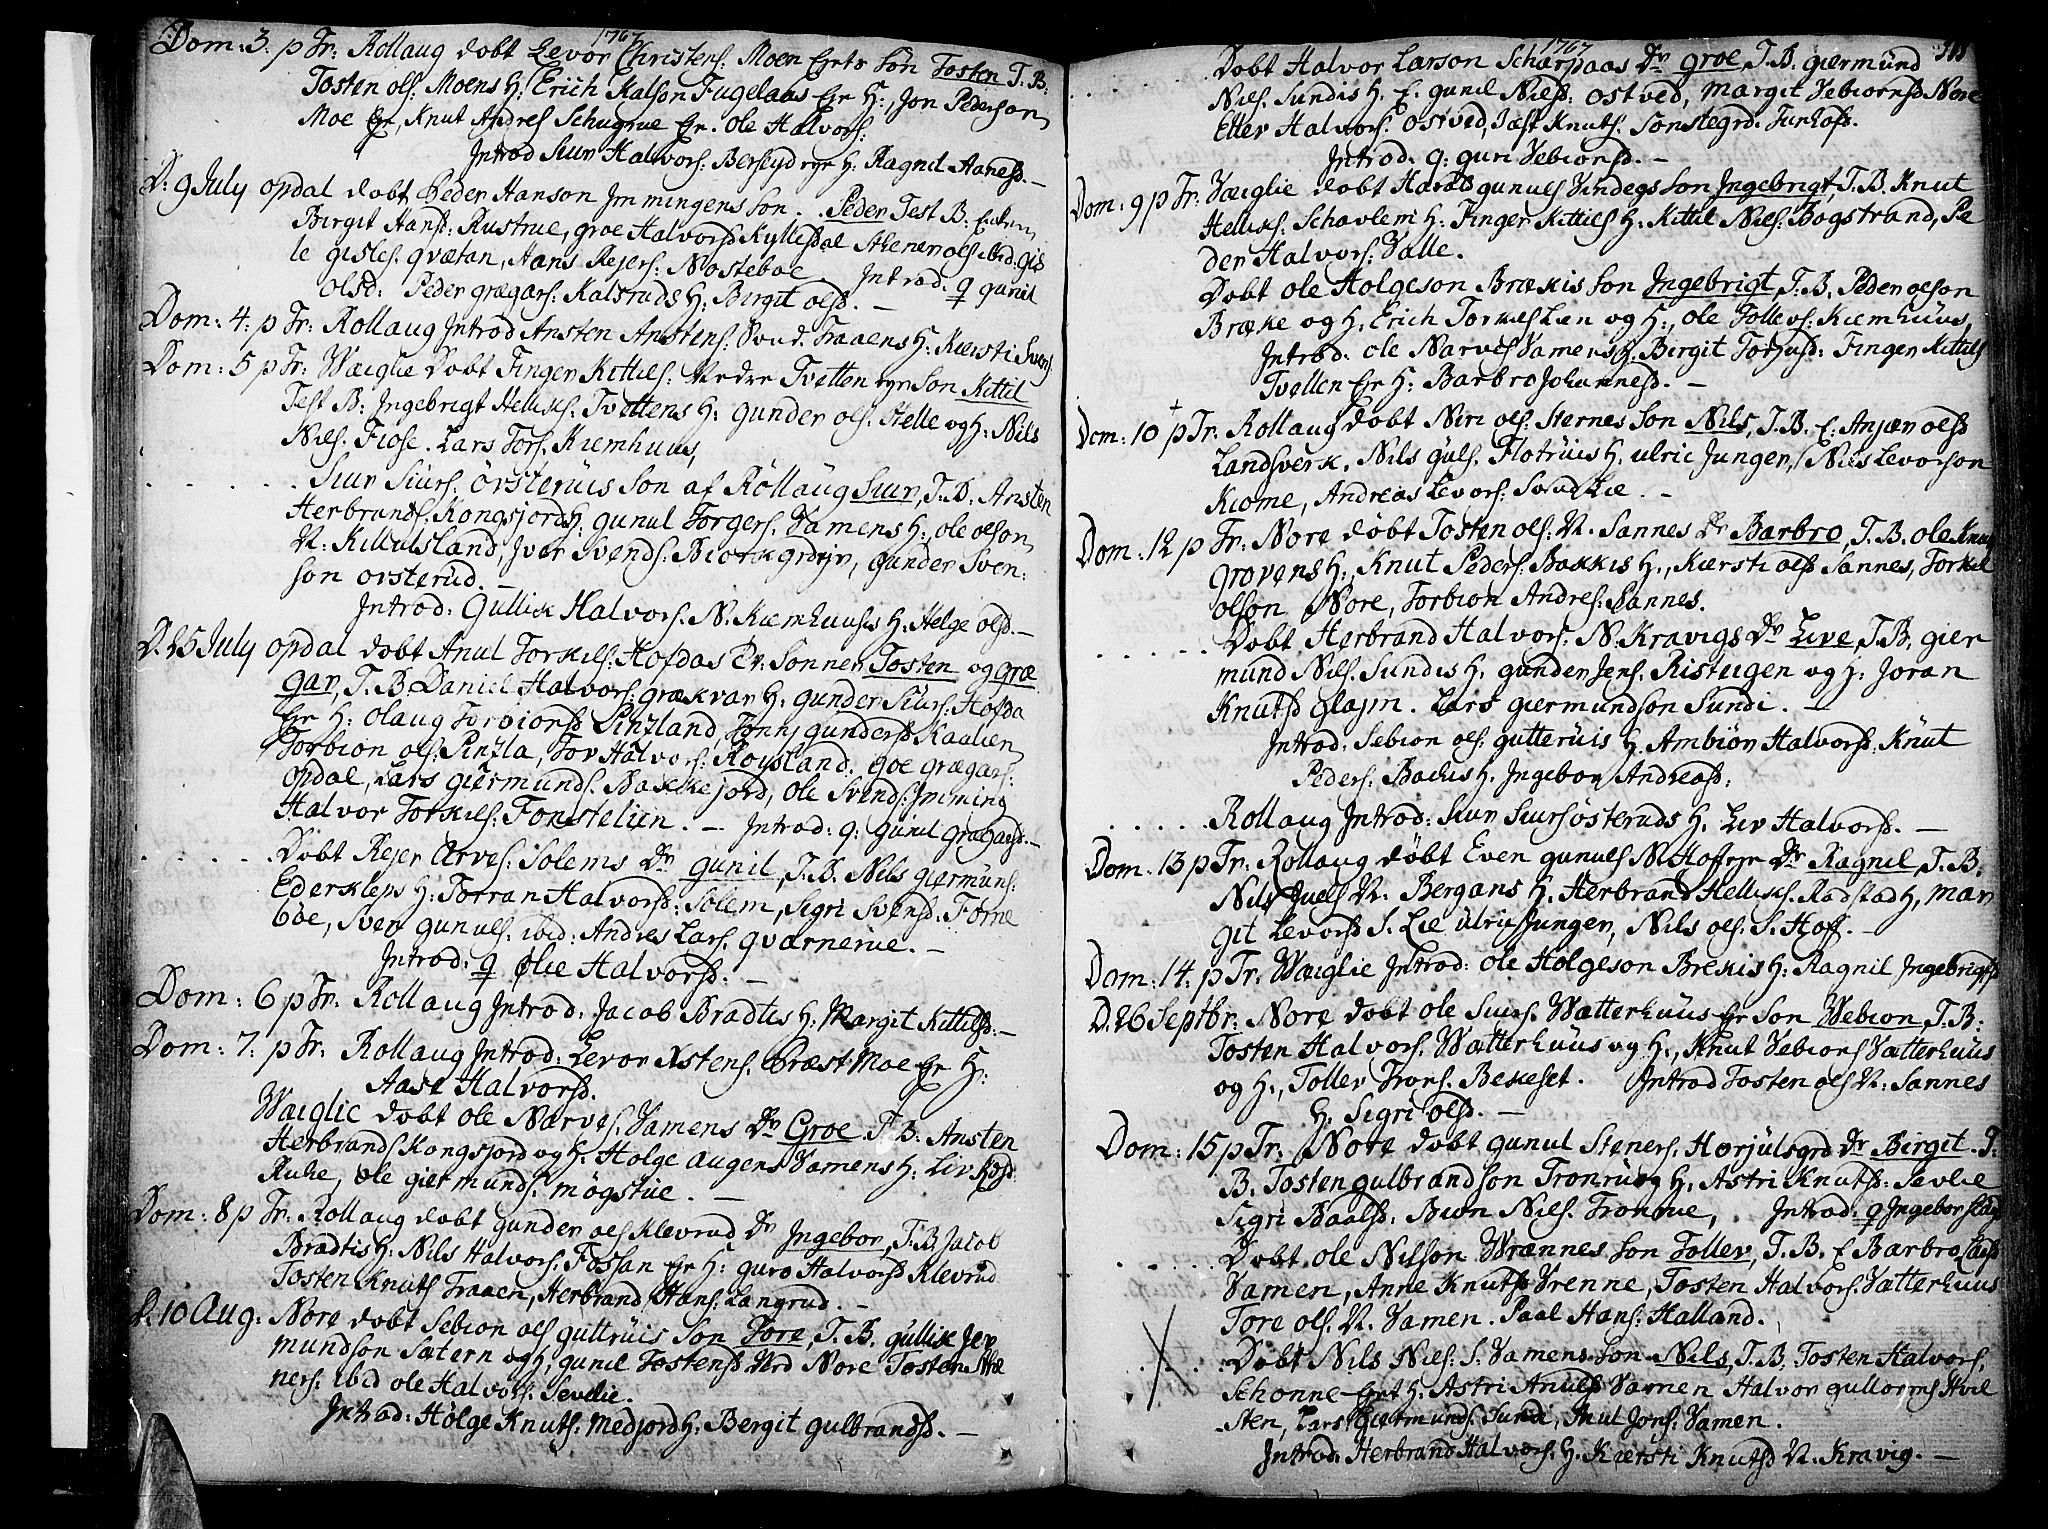 1767
Dom: 3. p Tr: Rollaug dobt Levor Christens. Moen Son Tosten T. B.
Tosten ols: Moens H: Erich Kalson Fugelaas Ejr H:, Jon Pederson
Moe Ejr, Knut Andres Ejr. Ole Halvors:
Introd Siur Halvors: H: Ragnil Aanesd. —
D: 9 July Opdal dobt Peder Hanson Immingens Son. Peder Test B:
Birgit Hansd: Rustrue, groe Halvorsd Kyllesdal Stener ols ibid: Gis
le gisles. qvætan, Hans Rejers: Nosteboe. Introd: q gunil
olsd: Peder grægars: Kalsruds H: Birgit olsd. —
Dom: 4: p Tr: Rollaug Introd Ansten Anstens: Traaens H: Kiersti Svens
Dom: 5 p Tr: Wæglie Dobt Finger Kittils: Nedre Tvetten Son Kittil
Test B: Ingebrigt Helliks. Tvettens H: gunder ols: Stelle og H: Nils
Niels. Fiose. Lars Tors: Kiemhuus,
. . . . . . Siur Siurs: Örsteruis Son af Rollaug Siur, T. B. Ansten
Herbrands: Kongsjords H: gunul Torgers. Vamens H:, ole olson
N: Killulsland, Jver Svends: Biorkgrdejr, gunder Sven:
son orsterud. —
Introd: Gullik Halvors. N. Kiemhuuses H: Helge olsd. —
D. 25 July opdal dobt Anul Torkils: Hofdas Sonner Tosten og græ
gar, T. B. Daniel Halvors: H: gunder Siurs: Hofda
Ejr H: olaug Torbiorsd Pintland, Tonnj gundersd Kaalien
Torbion ols: Pintla, Tor Halvors: Roysland: goe grægars:
opdal, Lars giermunds. Bakkejord, ole Svends: Imming
Halvor Torkils: Fonstelien. — Introd: q: gunil gragarsd. —
. . . . . . Dobt Rejer Arves: Solems Dr gunil, T. B. Nils giermuns:
Ederkleps H: Torran Halvorsd: Solem, Sigri Svensd: Torne
böe, Sven gunuls. ibid: Andres Lars. qværnerue. —
Introd: q Olie Halvorsd. —
Dom: 6 p Tr: Rollaug Introd. Jacob Bradtis H: Margit Kittilsd: —
Dom: 7: p Tr: Rollaug Introd: Levor Xstens. Præst Moe Ejr H:
Aase Halvorsd.
Wæglie dobt ole Narves. Vamens Dr Groe. T. B: Ansten
Herbrands Kongsjord og H. Holge augens Vamens H: Liv
Ruhe, ole giermunds: mögstue. —
Dom: 8 p Tr: Rollaug dobt gunder ols Klevrud Dr Ingebor, T. B. Jacob
Bradtis H: Nils Halvors. Fossan Ejr H: guro Halvorsd Klevrud
Tosten Knuts Traaen, Herbrand Hans: Langrud. —
D. 10 Aug: Nore dobt Sebion ols gutteruis Son Tore, T. B. gullik Jer
mundson Sætern og H, gunil Tostensd Nore Tosten
ners: ibid ole Halvors: Sevelie.
Introd: Holge Knuts: Medjord H: Bergit gulbrandsd. —
1767
Dobt Halvor Larson Scharpaas Dr groe, T. B. giermund
Niels. Sundis H. E. gunil Nielsd: ostved, Margit Vebiornsd Nore
Ellev Halvors. ostved, Knuts. Sonstegrd.
Introd. q: guri Vebionsd. —
Dom: 9 p Tr: Væglie dobt Harald gunuls Vindegs Son Ingebrigt, T. B. Knut
Helliks: Schavlem H: Finger Kittils H: Kittil Niels: Bogstrand, Pe
der Halvors: Valle.
Dobt ole Holgeson Brækis Son Ingebrigt, T. B. Peder olson
Bræke og H, Erich Torkels Læn og H:, ole Tollevs: Kiemhuus,
Introd. ole Narves Vamens H. Birgit Torjusd: Finger Kittils
Tvetten Ejr H: Barbro Johannesd. —
Dom: 10 p Tr: Rollaug dobt Niri ols: Sternes Son Nils, T. B. E. Anjær olsd
Landsverk, Nils guls. Flotruis H, ulric Junger, Nils Levorson
Kiome, Andreas Levors: Lie. —
Dom: 12 p Tr: Nore dobt Tosten ols: N. Sannes Dr Barbro, T. B. ole Knuts
grovens H:, Knut Peders: Bakkis H:, Kiersti olsd Sannes, Torkil
olson Nore, Torbion Andres: Sannes.
. . . . . Dobt Herbrand Halvors: N. Kravigs Dr Live, T. B. gier
mund Niels. Sundis H: gunder Jens. Risteigen og H: Joran
Knutsd Lars giermundson Sundi. —
Introd: Sebion ols: gutteruis H. Ambior Halvorsd. Knut
Peders: Backis H. Ingebor Andreasd:
. . . . . Rollaug Introd: Siur Siursösteruds H. Liv Halvorsd. —
Dom: 13 p Tr: Rollaug dobt Even gunuls N. Dr Ragnil, T. B.
Nils Juels N. Bergans H. Herbrand Helliks. Rodstad H, Mar
git Levorsd S. Lie Ulric Junger, Nils ols: S. Hoff. —
Dom: 14: p Tr: Wæglie Introd: ole Holgeson Brekis H: Ragnil Ingebrigtsd
D. 26 Septbr: Nore dobt ole Suurs: Wætterhuus Ejr Son Webion, T. B:
Tosten Halvors. Wætterhuus og H., Knut Vebions Vætterhuus
og H., Tollev Trons. Bekeset. Introd Tosten ols N: Sannes
H. Sigri olsd. —
Dom: 15 p Tr: Nore dobt gunul Steners. Horjulsgrd Dr Birgit. T:
B. Tosten gulbrandson Tronrud og H. Astri Knutsd: Sevlie
Sigri Baalsd: Bion Niels. Tronrue, Introd: q Ingebor
. . . . . Dobt. ole Nilsson Wrennes Son Tollev, T. B. E Barbro Larsd
Vamen, Anne Knutsd Vrenne, Tosten Halvors. Vætterhuus
Tore ols. N. Vamen. Paal Hans: Halland.
. . . . Dobt Nils Niels: S: Vamens Son Nils, T. B. Tosten Halvors.
Schonne H: Astri Anulsd Vamen Halvor gullorms Hvil
sten, Lars Giermunds Sundi, Anul Jons: Vamen.
Introd: Herbrand Halvors. H. Kiersti Knutsd N. Kravig. —